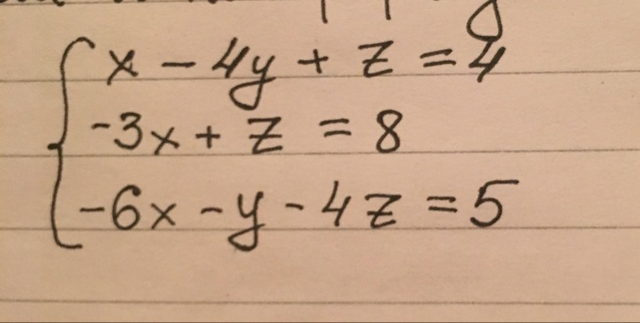 x - 4y + z = 4
-3x + z = 8
-6x - y - 4z = 5